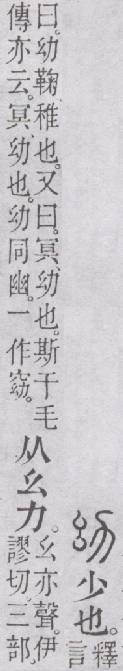 幼
少也。
釋
言
曰。幼鞠稚也。又曰。冥、幼也。斯干毛
傳亦云。冥、幼也。幼同幽。一作窈。
从幺力。
幺亦聲。伊
謬切。三部。